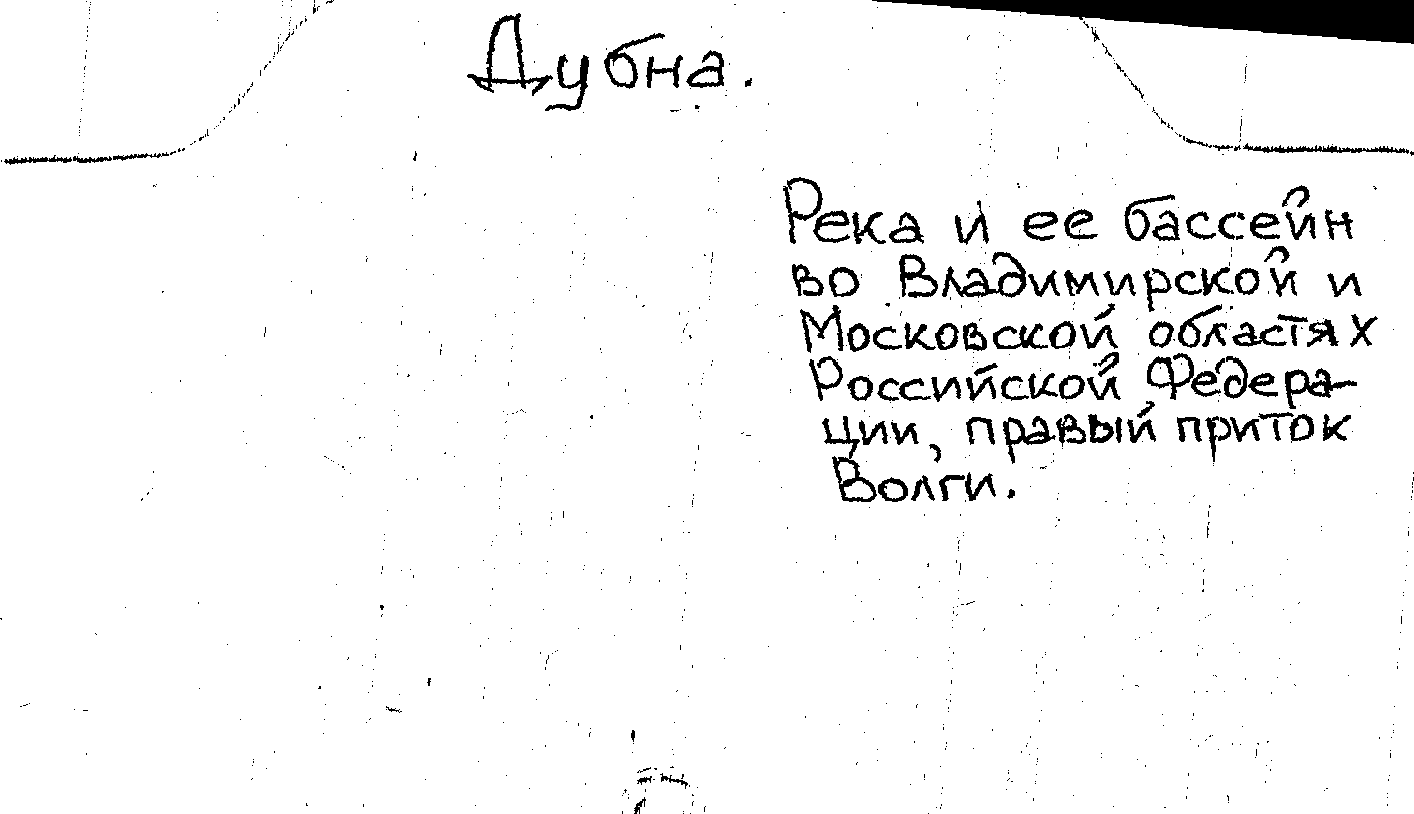 Дубна.
Река и ее бассейн
во Владимирской и
Московской областях
Российской Федера-
ции, правый приток
Волги.